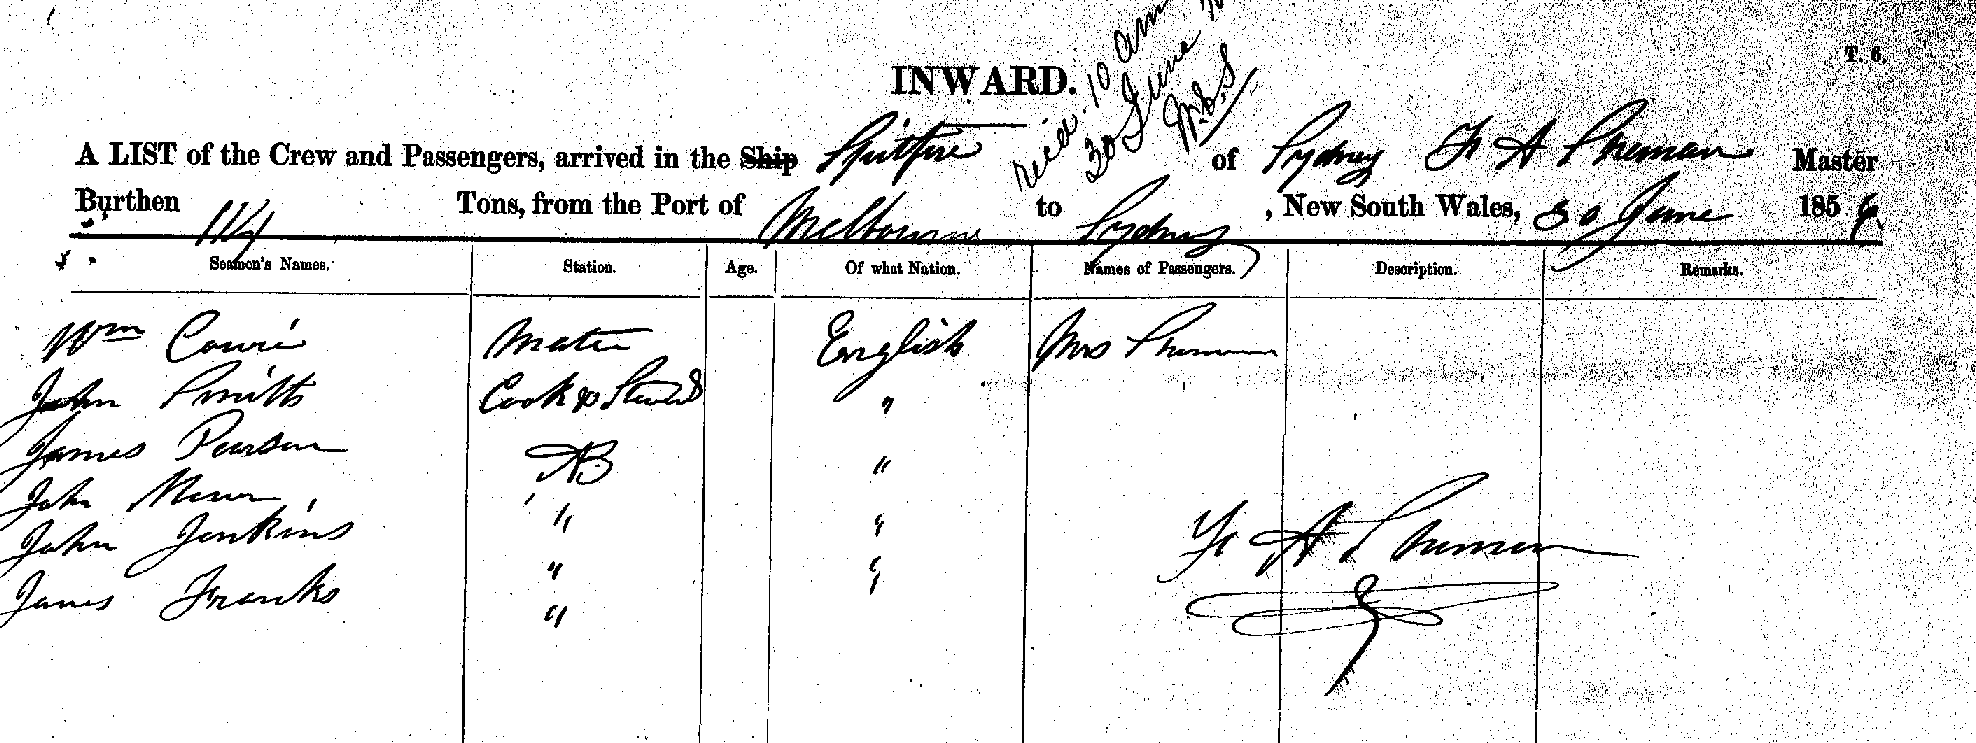 T. 6.
INWARD.
recd. 10 am
30 June
A LIST of the Crew and Passengers, arrived in the Ship Spitfire of Sydney Fr A Shuman Master
Burthen 114 Tons, from the Port of Melbourne to Sydney, New South Wales, 30 June 1856
Seamen's Names. Station. Age. Of what Nation. Names of Passengers. Description. Remarks.
Wm Cowie Mate English Mrs Shuman
John Smith Cook & Steward "
James Pearson AB "
John " "
John Jenkins " "
James Franks " "
Fr A Shuman